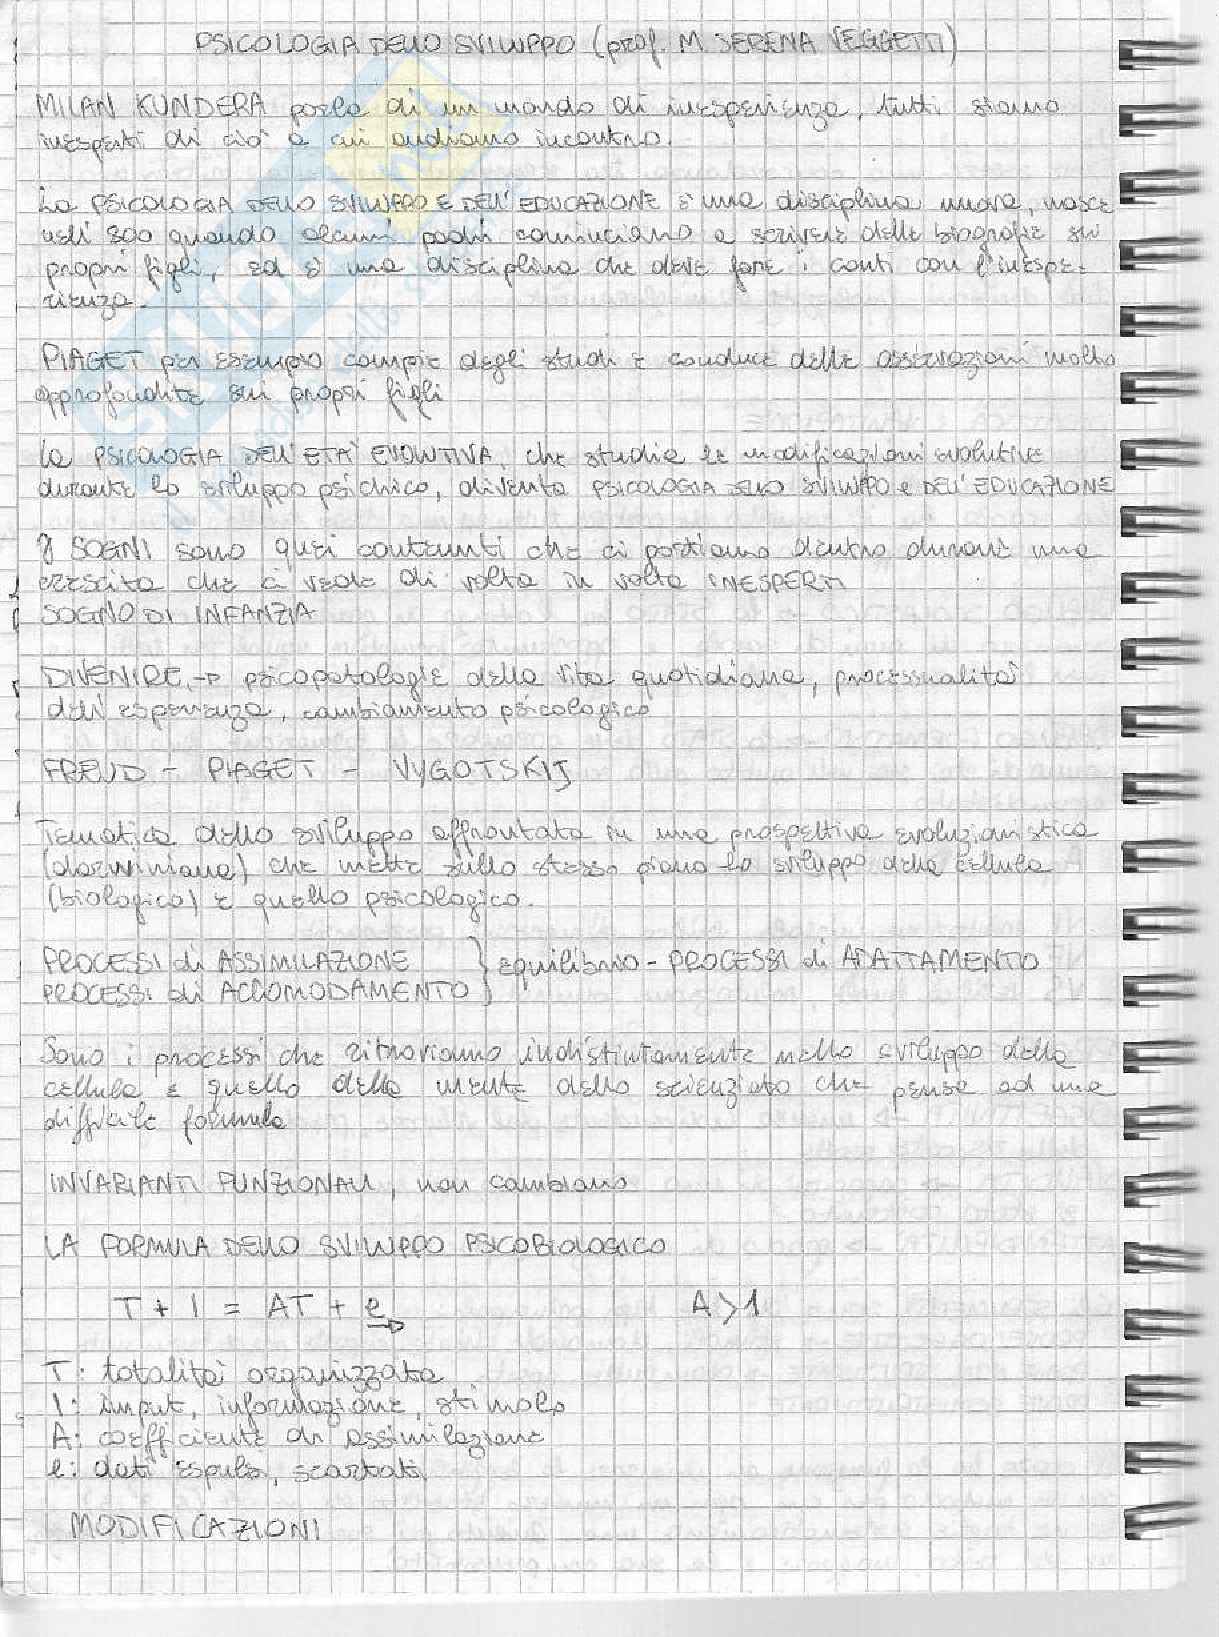 PSICOLOGIA DELLO SVILUPPO (prof. M. SERENA VEGGETTI)
MILAN KUNDERA parla di un mondo di inesperienza, tutti siamo
inesperti di ciò a cui andiamo incontro.
La PSICOLOGIA DELLO SVILUPPO E DELL'EDUCAZIONE è una disciplina nuova, nasce
nell'800 quando alcuni padri cominciano a scrivere delle biografie sui
propri figli, ed è una disciplina che deve fare i conti con l'inespe-
rienza.
PIAGET per esempio compie degli studi e conduce delle osservazioni molto
approfondite sui propri figli
La PSICOLOGIA DELL'ETA' EVOLUTIVA, che studia le modificazioni evolutive
durante lo sviluppo psichico, diventa PSICOLOGIA DELLO SVILUPPO e DELL'EDUCAZIONE
I SOGNI sono quei contenuti che ci portiamo dentro durante una
crescita che ci vede di volta in volta INESPERTI
SOGNO DI INFANZIA
DIVENIRE → psicopatologie della vita quotidiana, processualità
dell'esperienza, cambiamento psicologico
FREUD - PIAGET - VYGOTSKIJ
Tematica dello sviluppo affrontata in una prospettiva evoluzionistica
(darwiniana) che mette sullo stesso piano lo sviluppo della cellula
(biologico) e quello psicologico.
PROCESSI di ASSIMILAZIONE } equilibrio - PROCESSI di ADATTAMENTO
PROCESSI di ACCOMODAMENTO
Sono i processi che ritroviamo indistintamente nello sviluppo della
cellula e quello della mente dello scienziato che pensa ad una
difficile formula
INVARIANTI FUNZIONALI, non cambiano
LA FORMULA DELLO SVILUPPO PSICOBIOLOGICO
T + I = AT + e → A > 1
T: totalità organizzata
I: input, informazione, stimolo
A: coefficiente di assimilazione
e: dati espulsi, scartati
MODIFICAZIONI